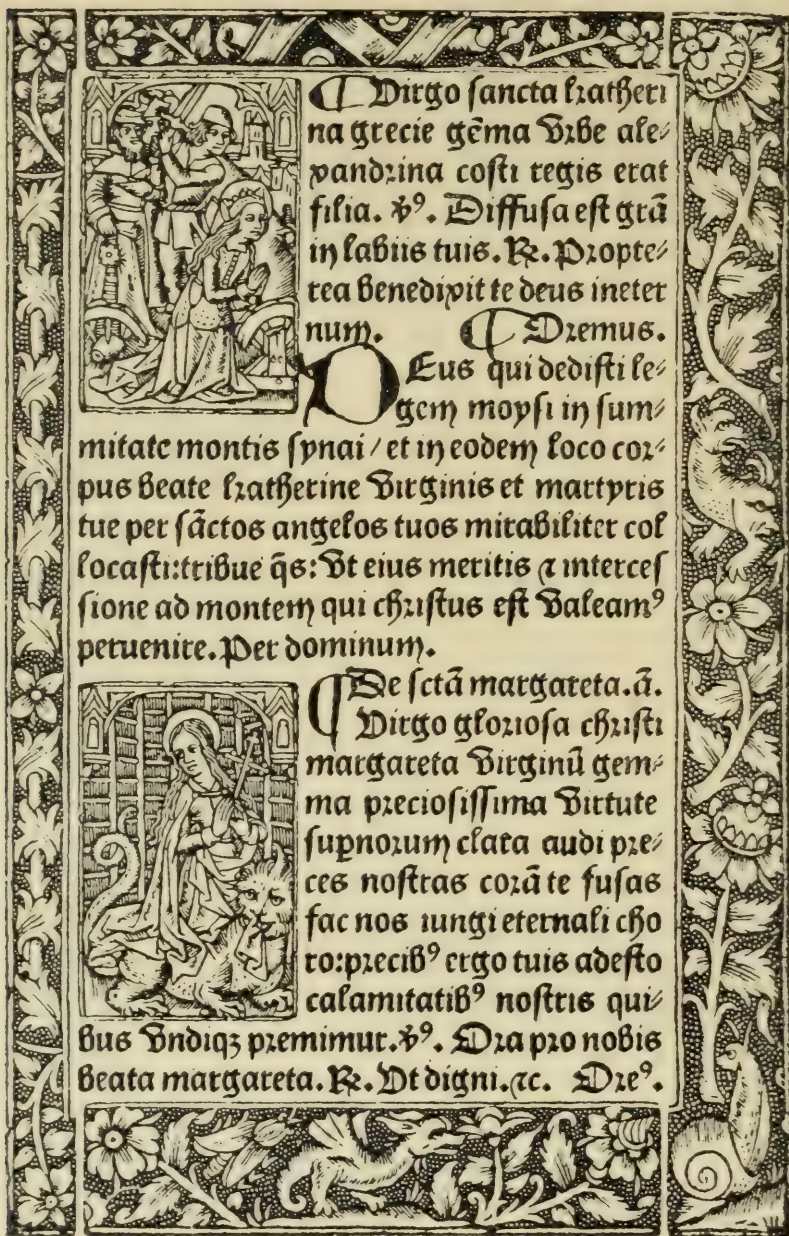 ¶ Virgo sancta katheri
na grecie gēma vrbe ale⸗
xandrina costi regis erat
filia. ℣⁹. Diffusa est grā
in labiis tuis. ℟. Propte⸗
rea benedixit te deus ineter
num. ¶ Oremus.
DEus qui dedisti le⸗
gem moysi in sum⸗
mitate montis synai / et in eodem loco cor⸗
pus beate katherine virginis et martyris
tue per sāctos angelos tuos mirabiliter col
locasti:tribue q̄s: vt eius meritis ⁊ interces
sione ad montem qui christus est valeam⁹
peruenire. Per dominum.
¶ De sctā margareta. ā.
Virgo gloriosa christi
margareta virginū gem⸗
ma preciosissima virtute
supnorum clara audi pre⸗
ces nostras corā te fusas
fac nos iungi eternali cho
ro:precib⁹ ergo tuis adesto
calamitatib⁹ nostris qui⸗
bus vndiqꝫ premimur. ℣⁹. Ora pro nobis
beata margareta. ℟. Vt digni. ⁊c. Ore⁹.